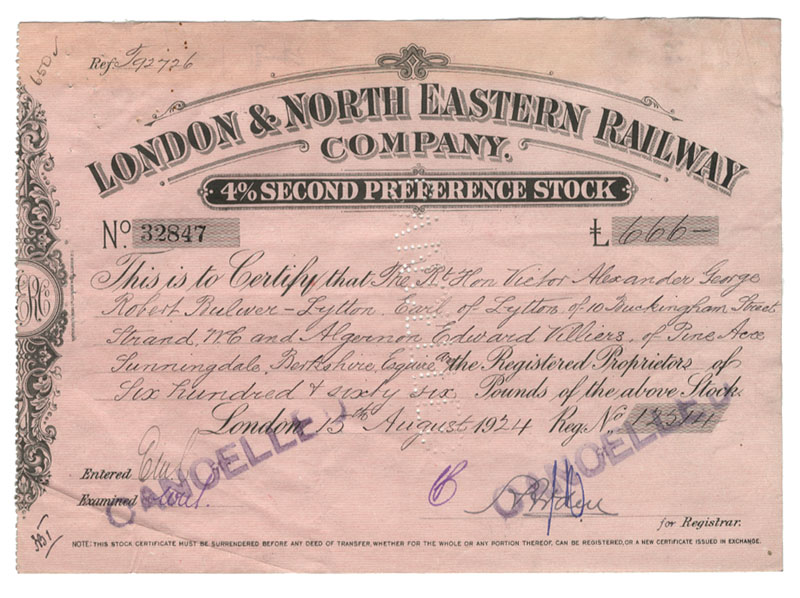 650
Ref: T92726
LONDON & NORTH EASTERN RAILWAY
COMPANY.
4% SECOND PREFERENCE STOCK
No. 32847 £ 666—
This is to Certify that The Rt. Hon Victor Alexander George
Robert Bulwer-Lytton Earl of Lytton of 10 Buckingham Street
Strand, WC and Algernon Edward Villiers, of Pine Acre
Sunningdale, Berkshire, Esquire the Registered Proprietors of
Six hundred & sixty six Pounds of the above Stock.
London, 15th August 1924 Reg. No. 12314
CANCELLED
CANCELLED
Entered
Examined
for Registrar.
NOTE: THIS STOCK CERTIFICATE MUST BE SURRENDERED BEFORE ANY DEED OF TRANSFER, WHETHER FOR THE WHOLE OR ANY PORTION THEREOF, CAN BE REGISTERED, OR A NEW CERTIFICATE ISSUED IN EXCHANGE.